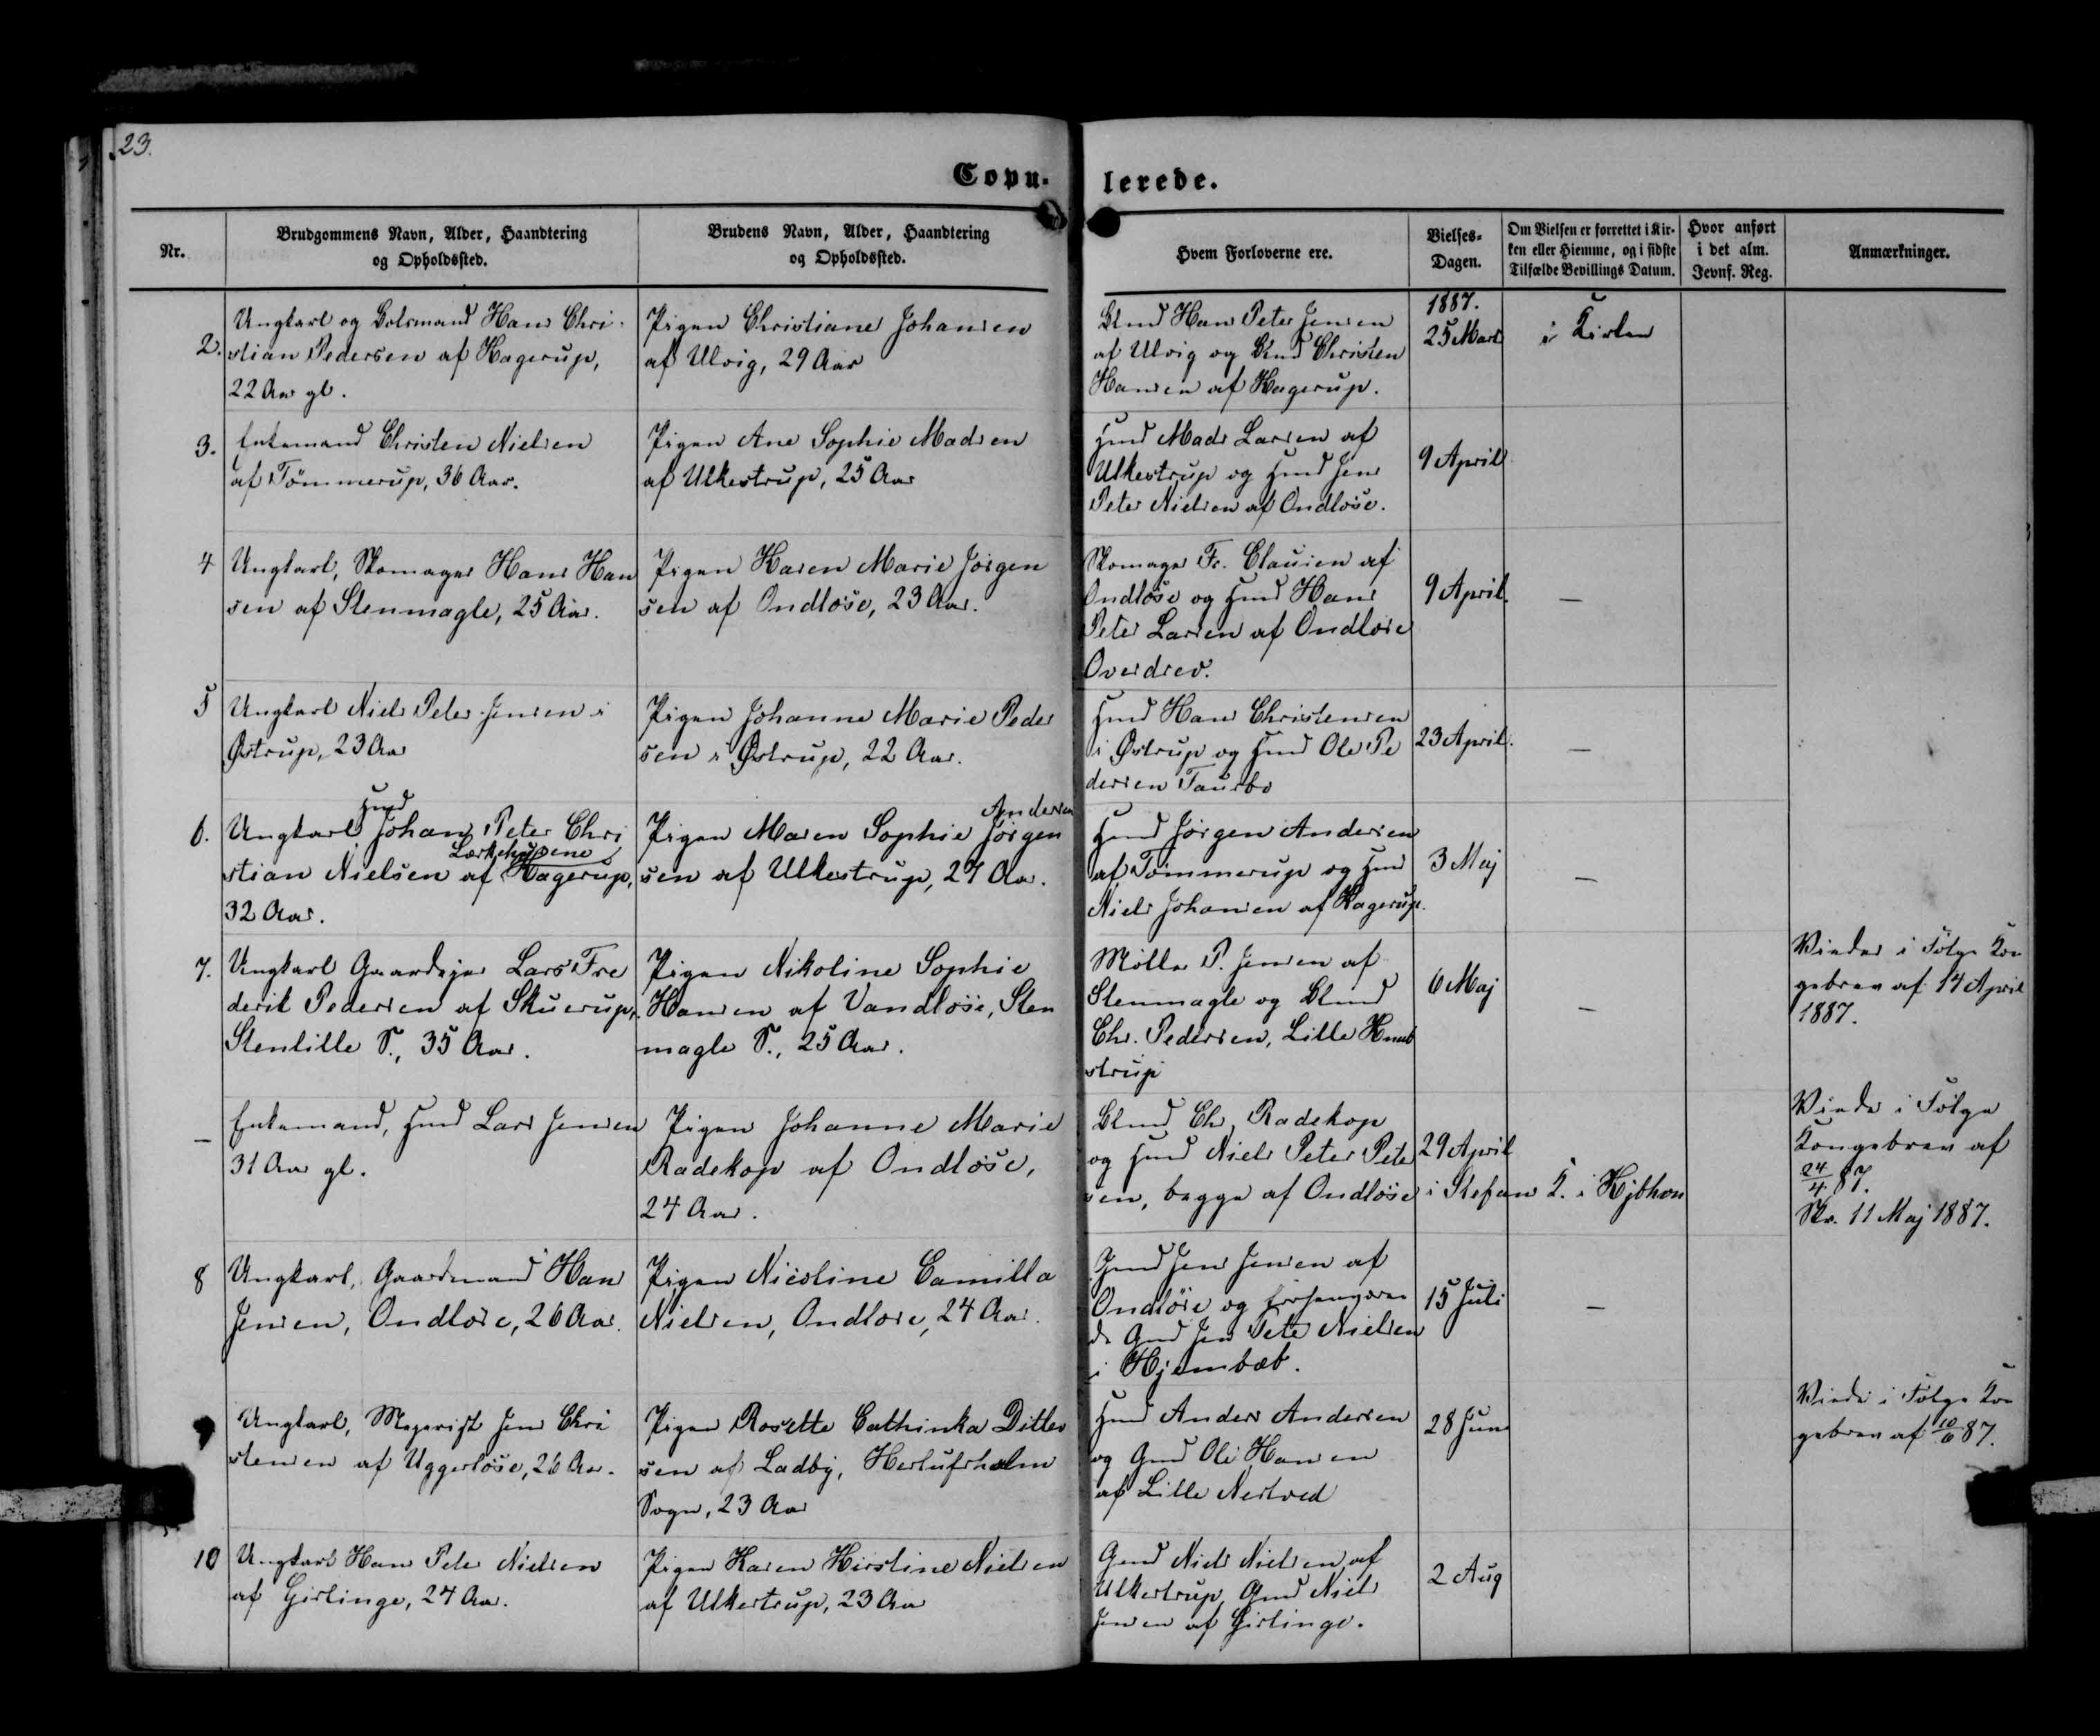 23.
Copu-
lerede.
Nr.
Brudgommens Navn, Alder, Haandtering
og Opholdssted.
Brudens Navn, Alder, Haandtering
og Opholdssted.
Hvem Forloverne ere.
Vielses-
Dagen.
Om Vielsen er forrettet i Kir-
ken eller Hiemme, og i sidste
Tilfælde Bevillings Datum.
Hvor anført
i det alm.
Jevnf. Reg.
Anmærkninger.
2.
Ungkarl og Bolsmand Hans Chri-
stian Pedersen af Hagerup,
22 Aar gl.
Pigen Christiane Johansen
af Ulvig, 29 Aar
Blmd Hans Peter Jensen
af Ulvig og Blmd Christen
Hansen af Hagerup.
1887.
25 Marts
i Kirken
3.
Enkemand Christen Nielsen
af Tömmerup, 36 Aar.
Pigen Ane Sophie Madsen
af Ulkestrup, 25 Aar
Hmd Mads Larsen af
Ulkestrup og Hmd Jens
Peter Nielsen af Ondløse.
9 April
4
Ungkarl, Skomager Hans Han
sen af Stenmagle, 25 Aar.
Pigen Karen Marie Jørgen
sen af Ondløse, 23 Aar.
Skomager Fr. Clausen af
Ondløse og Hmd Hans
Peter Larsen af Ondløse
Overdrev.
9 April.
—
5
Ungkarl Niels Peter Jensen i
Østrup, 23 Aar
Pigen Johanne Marie Peder
sen i Østrup, 22 Aar.
Hmd Hans Christensen
i Østrup og Hmd Ole Pe
dersen Taurbo
23 April.
—
6.
Hmd
Ungkarl Johan Peter Chri
Lærkehusene
stian Nielsen af Hagerup,
32 Aar.
Andersen
Pigen Maren Sophie Jørgen
sen af Ulkestrup, 27 Aar.
Hmd Jørgen Andersen
af Tömmerup og Hmd
Niels Johansen af Hagerup.
3 Maj
—
7.
Ungkarl Gaardejer Lars Fre
derik Pedersen af Skuerup,
Stenlille S., 35 Aar.
Pigen Nikoline Sophie
Hansen af Vandløse, Sten
magle S., 25 Aar.
Møller P. Jensen af
Stenmagle og Blmd
Chr. Pedersen, Lille Knab
strup
6 Maj
—
Viedes i Følge Kon
gebrev af 14 April
1887.
—
Enkemand, Hmd Lars Jensen
31 Aar gl.
Pigen Johanne Marie
Radekop af Ondløse,
24 Aar.
Blmd Ch. Radekop
og Hmd Niels Peter Peter
sen, begge af Ondløse
29 April
i Stefans K. i Kjbhvn
Viede i Følge
Kongebrev af
24/4 87.
Skr. 11 Maj 1887.
8
Ungkarl, Gaardmand Hans
Jensen, Ondløse, 26 Aar.
Pigen Nicoline Camilla
Nielsen, Ondløse, 24 Aar.
Gmd Jens Jensen af
Ondløse og
Gmd Jens Peter Nielsen
i Hjembæk.
15 Juli
—
9
Ungkarl, Mejerist Jens Chri
stensen af Uggerløse, 26 Aar.
Pigen Rosette Cathinka Ditlev
sen af Ladby, Herlufsholm
Sogn, 23 Aar
Hmd Anders Andersen
og Gmd Ole Hansen
af Lille Nestved
28 Juni
Viede i Følge Kon
gebrev af 10/6 87.
10
Ungkarl Hans Peter Nielsen
af Girlinge, 24 Aar.
Pigen Karen Kirstine Nielsen
af Ulkestrup, 23 Aar
Gmd Niels Nielsen af
Ulkestrup, Gmd Niels
Jensen af Girlinge.
2 Aug